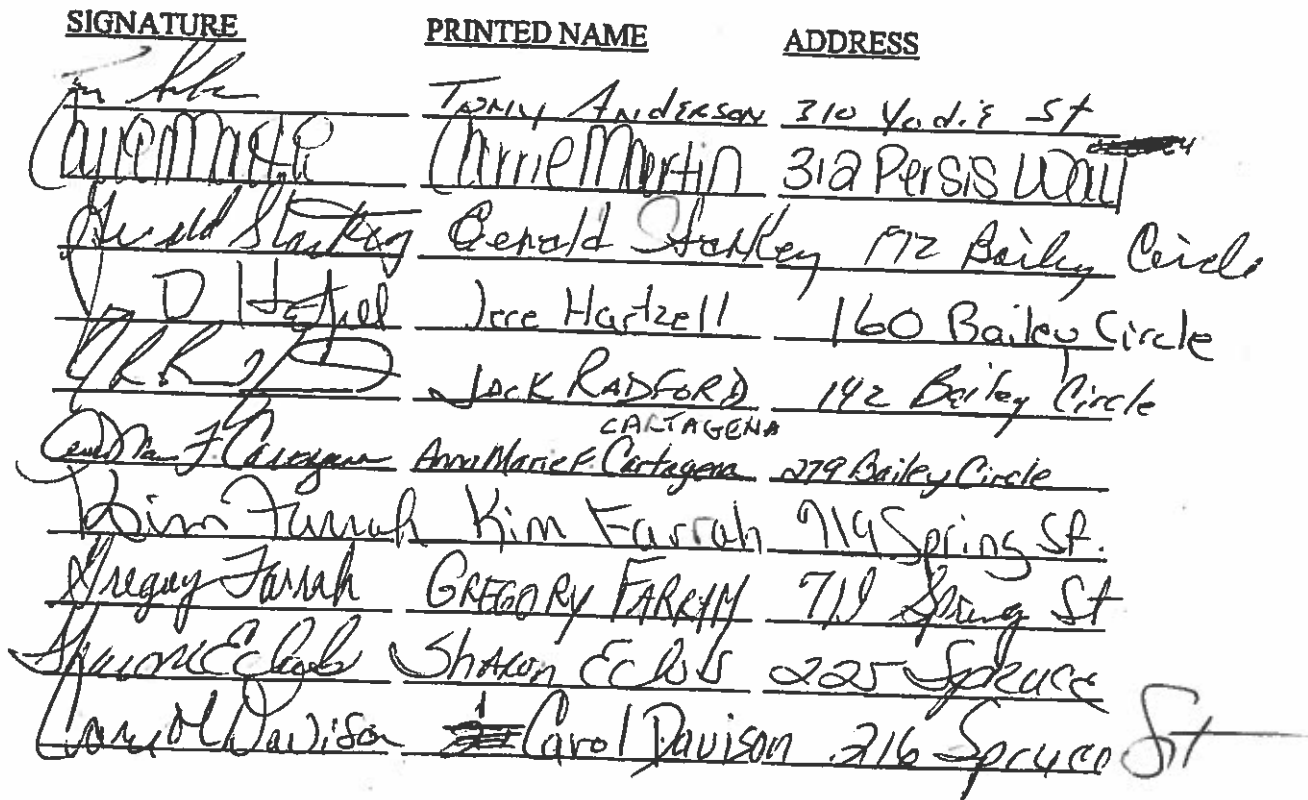 SIGNATURE PRINTED NAME ADDRESS
Tony Anderson 310 St
Carrie Martin Carrie Martin 312 Persis Way
Gerald Starkey Gerald Starkey 172 Bailey Circle
D Hartzell Jere Hartzell 160 Bailey Circle
Jack Radford 142 Bailey Circle
CARTAGENA
Anna Marie F. Cartagena 279 Bailey Circle
Kim Farrah Kim Farrah 719 Spring St.
Gregory Farrah GREGORY FARRAH 719 Spring St
Sharon Echols Sharon Echols 225 Spruce
Carol Davison Carol Davison 216 Spruce St